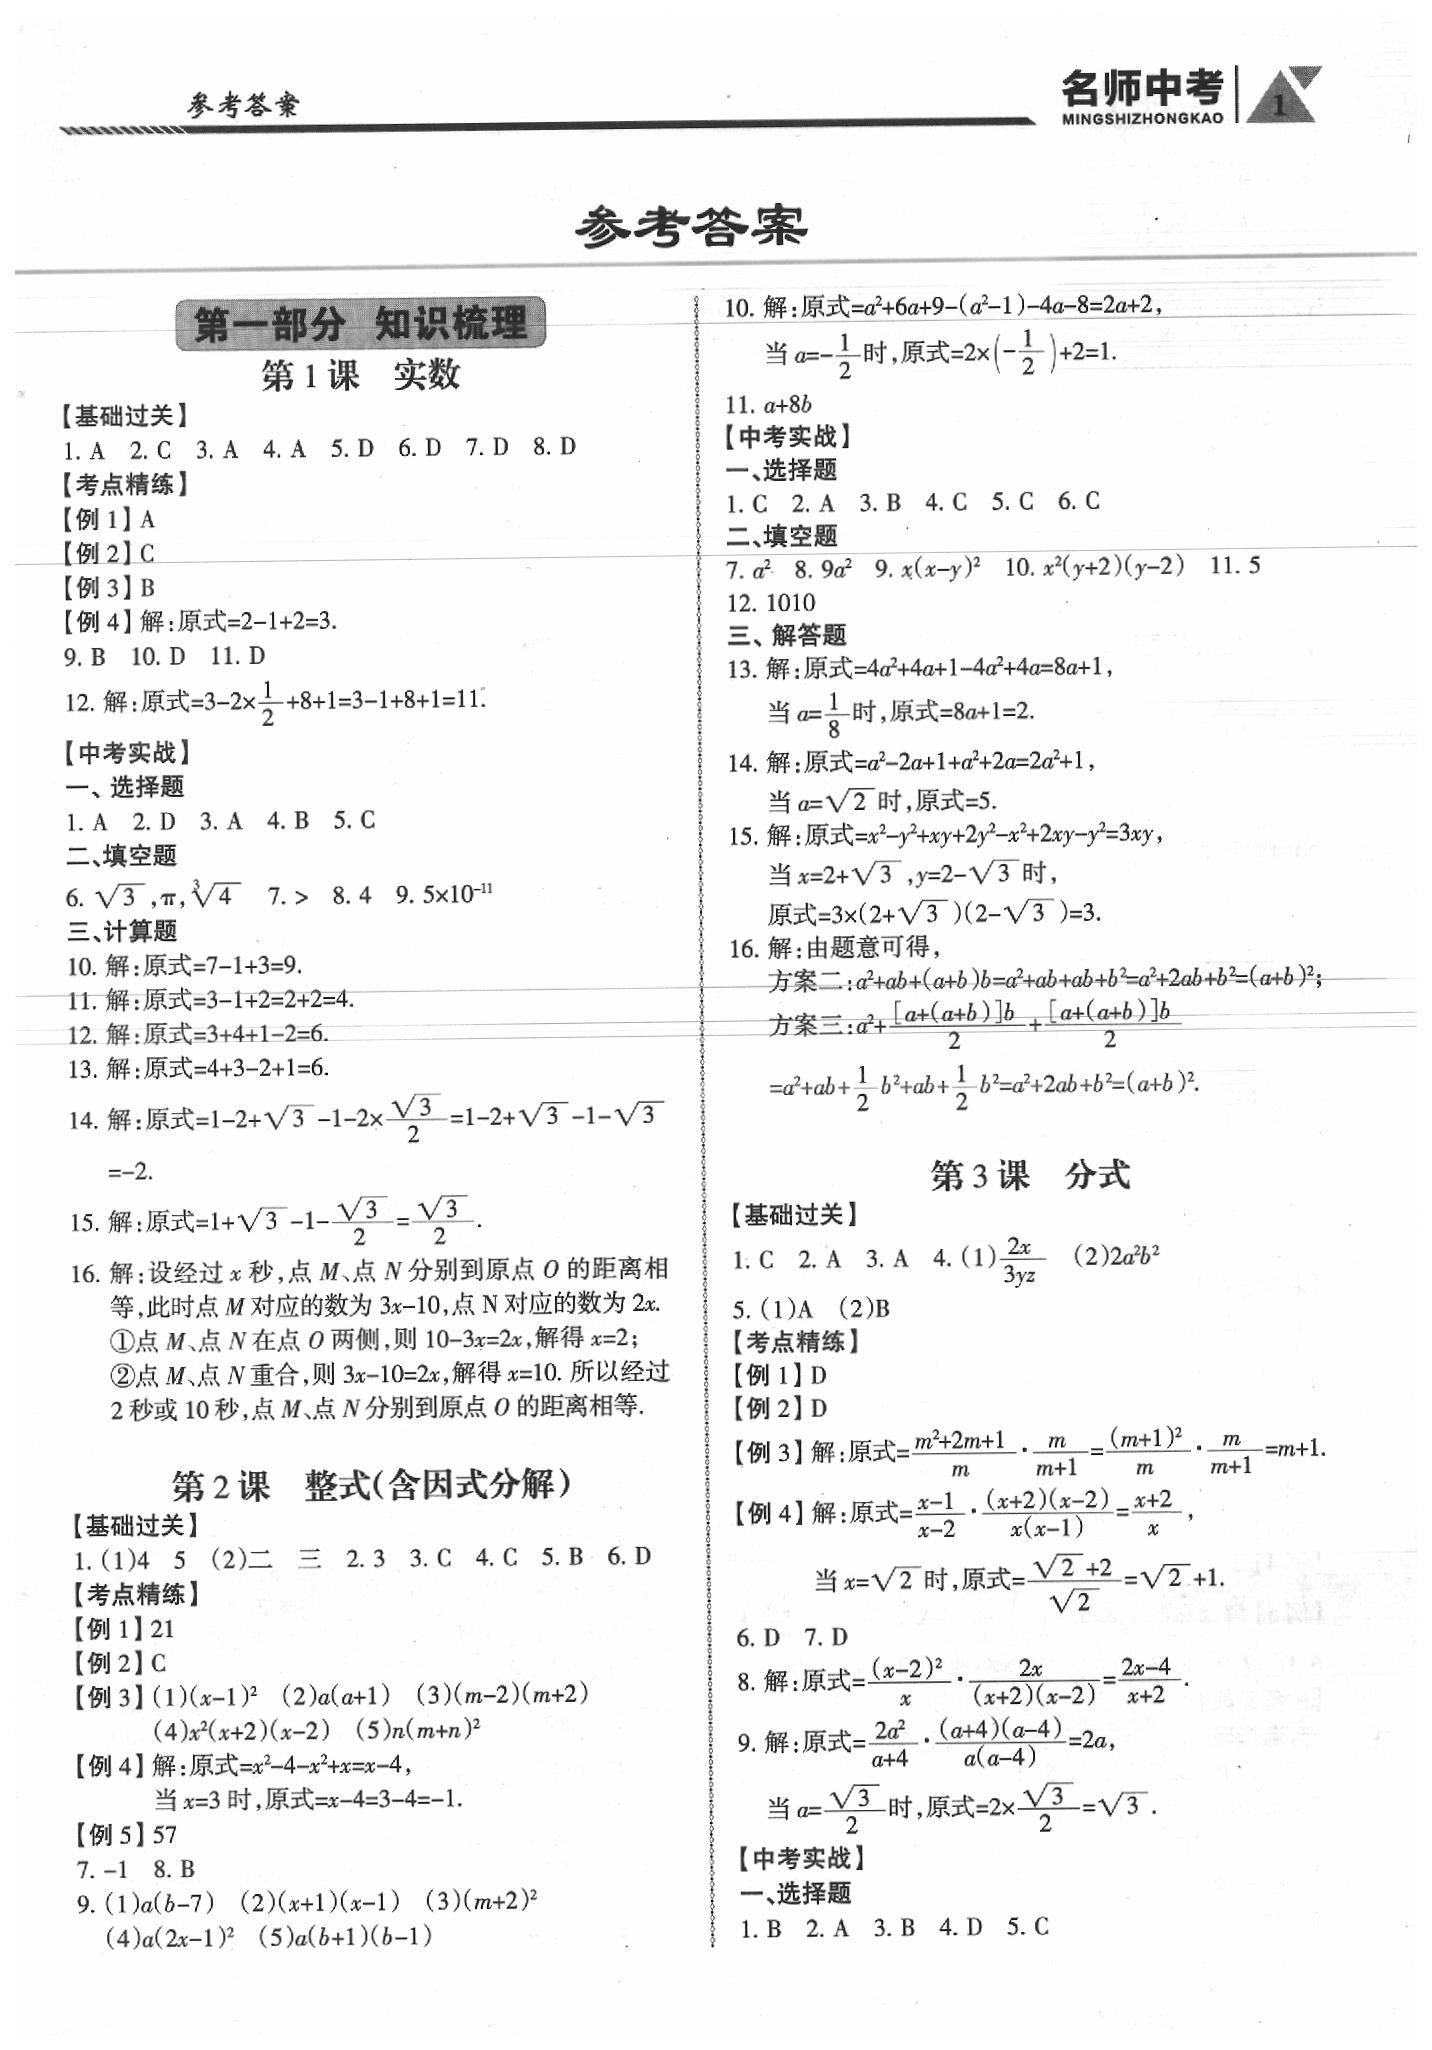 参考答案
名师中考
MINGSHIZHONGKAO
1
参考答案
第一部分 知识梳理
第1课 实数
【基础过关】
1. A 2. C 3. A 4. A 5. D 6. D 7. D 8. D
【考点精练】
【例1】A
【例2】C
【例3】B
【例4】解:原式=2-1+2=3.
9. B 10. D 11. D
12. 解:原式=3-2×1/2+8+1=3-1+8+1=11.
【中考实战】
一、选择题
1. A 2. D 3. A 4. B 5. C
二、填空题
6. √3,π,∛4 7. > 8. 4 9. 5×10⁻¹¹
三、计算题
10. 解:原式=7-1+3=9.
11. 解:原式=3-1+2=2+2=4.
12. 解:原式=3+4+1-2=6.
13. 解:原式=4+3-2+1=6.
14. 解:原式=1-2+√3-1-2×√3/2=1-2+√3-1-√3
=-2.
15. 解:原式=1+√3-1-√3/2=√3/2.
16. 解:设经过x秒,点M、点N分别到原点O的距离相
等,此时点M对应的数为3x-10,点N对应的数为2x.
①点M、点N在点O两侧,则10-3x=2x,解得x=2;
②点M、点N重合,则3x-10=2x,解得x=10. 所以经过
2秒或10秒,点M、点N分别到原点O的距离相等.
第2课 整式(含因式分解)
【基础过关】
1. (1)4 5 (2)二 三 2. 3 3. C 4. C 5. B 6. D
【考点精练】
【例1】21
【例2】C
【例3】(1)(x-1)² (2)a(a+1) (3)(m-2)(m+2)
(4)x²(x+2)(x-2) (5)n(m+n)²
【例4】解:原式=x²-4-x²+x=x-4,
当x=3时,原式=x-4=3-4=-1.
【例5】57
7. -1 8. B
9. (1)a(b-7) (2)(x+1)(x-1) (3)(m+2)²
(4)a(2x-1)² (5)a(b+1)(b-1)
10. 解:原式=a²+6a+9-(a²-1)-4a-8=2a+2,
当a=-1/2时,原式=2×(-1/2)+2=1.
11. a+8b
【中考实战】
一、选择题
1. C 2. A 3. B 4. C 5. C 6. C
二、填空题
7. a² 8. 9a² 9. x(x-y)² 10. x²(y+2)(y-2) 11. 5
12. 1010
三、解答题
13. 解:原式=4a²+4a+1-4a²+4a=8a+1,
当a=1/8时,原式=8a+1=2.
14. 解:原式=a²-2a+1+a²+2a=2a²+1,
当a=√2时,原式=5.
15. 解:原式=x²-y²+xy+2y²-x²+2xy-y²=3xy,
当x=2+√3,y=2-√3时,
原式=3×(2+√3)(2-√3)=3.
16. 解:由题意可得,
方案二:a²+ab+(a+b)b=a²+ab+ab+b²=a²+2ab+b²=(a+b)²;
方案三:a²+[a+(a+b)]b/2+[a+(a+b)]b/2
=a²+ab+1/2b²+ab+1/2b²=a²+2ab+b²=(a+b)².
第3课 分式
【基础过关】
1. C 2. A 3. A 4. (1)2x/3yz (2)2a²b²
5. (1)A (2)B
【考点精练】
【例1】D
【例2】D
【例3】解:原式=(m²+2m+1)/m·m/(m+1)=(m+1)²/m·m/(m+1)=m+1.
【例4】解:原式=(x-1)/(x-2)·(x+2)(x-2)/x(x-1)=(x+2)/x,
当x=√2时,原式=(√2+2)/√2=√2+1.
6. D 7. D
8. 解:原式=(x-2)²/x·2x/(x+2)(x-2)=(2x-4)/(x+2).
9. 解:原式=2a²/(a+4)·(a+4)(a-4)/a(a-4)=2a,
当a=√3/2时,原式=2×√3/2=√3.
【中考实战】
一、选择题
1. B 2. A 3. B 4. D 5. C